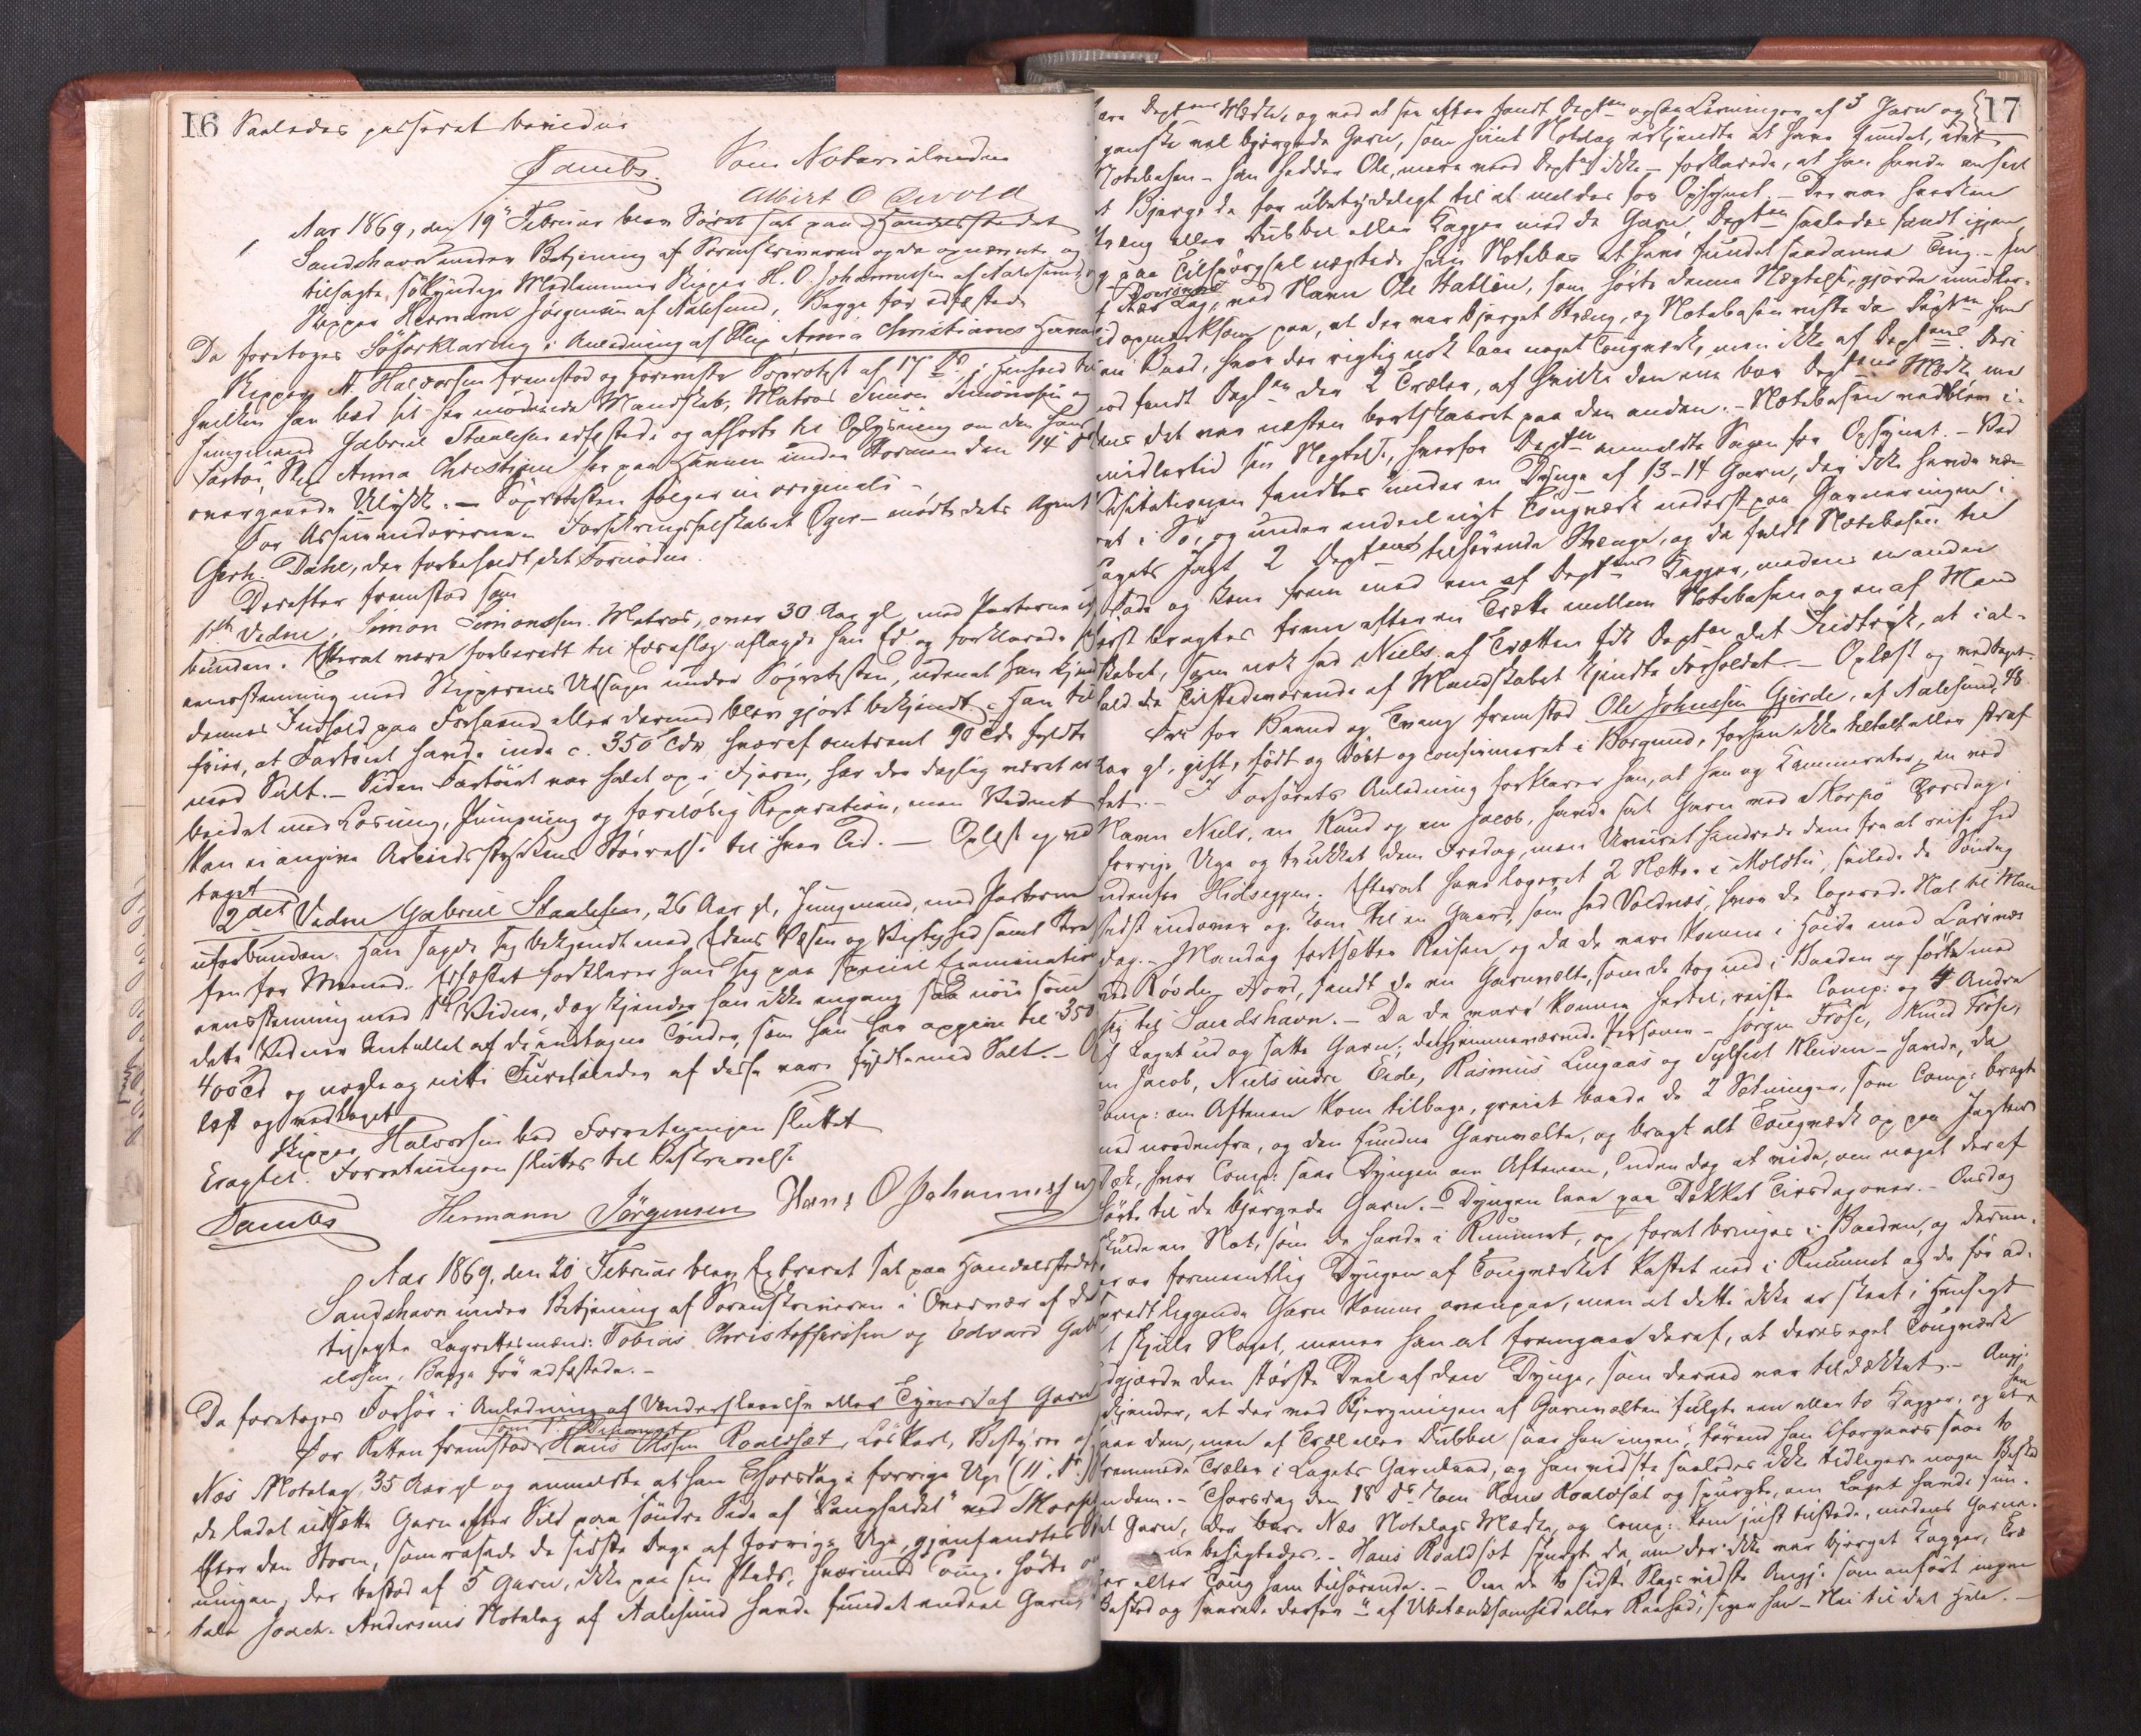 16 Saaledes passeret bevidnes
Jambs. Som Notarialvidne
Albert O Aivold
Aar 1869, den 19 Februar blev Söret sat paa Handelsstedet
Sandshavn under Betjening af Sorenskriveren og de opnævnte og
tilsagte, sökyndige Medlemmer Skipper H. O. Johannessen af Aalesund og
Skipper Hermann Jørgensen af Aalesund, Begge før edfæstede
Da foretoges Söforklaring i Anledning af Skip Anna Christianes Havari
Skipper N. Halvorsen fremstod og foreviste Söprotest af 17 ds. i Henhold til
hvilken han bad sit her mødende Mandskab, Matros Simon Simonssen og
Jungmand Gabriel Staalesen edfæstede og afhørte til Oplysning om den hans
Fartöi, Skip Anna Christiane her paa Havnen under Stormen den 14 ds
overgaaede Ulykke. — Söprotesten følger in originali -
For Assurandørerne - Forsikringsselskabet Æger - mødte dets Agent
Gerh. Dahl, der forbeholdt det Fornødne.
Derefter fremstod som
1ste Vidne, Simon Simonssen. Matros, over 30 Aar gl med Parterne ufor
bunden. Efterat være forberedt til Edsaflæg aflagde han Ed og forklarede
eensstemmig med Skipperens Udsagn under Söprotesten, uden at han kjend
dennes Indhold paa Forhaand eller dermed blev gjort bekjendt. Han til
føier, at Fartøiet havde inde c. 350 Tdr, hvoraf omtrent 90 Tdr fyldte
med Salt. — Siden Fartöiet var halet op i Fjæren, har der daglig været ar
beidet med Losning, Pumpning og foreløbig Reparation, men Vidnet
kan ei angive Arbeidsstyrkens Størrelse til hver Tid. — Oplæst og ved
taget
2det Vidne Gabriel Staalesen, 26 Aar gl, Jungmand, med Parterne
uforbunden. Han sagde sig bekjendt med Edens Væsen og Vigtighed samt Stra
fen for Meened. Edfæstet forklarer han sig paa special Examination
eensstemmig med 1ste Vidne, dog kjender han ikke engang saa nöie som
dette Vidne Antallet af de indtagne Tönder, som han har opgive til 350
400 Td og nogle og nitti Furetønder af disse vare fyldte med Salt. —
læst og vedtaget
Skipper Halvorsen bad Forretningen sluttet
Eragtet: Forretningen sluttes til Beskrivelse
Jambs Hermann Jörgensen Hans O Johannessen
Aar 1869, den 20 Februar blev Extraret sat paa Handelsstedet
Sandshavn under Betjening af Sorenskriveren i Overvær af de
tilsagte Lagrettesmænd: Tobias Christoffersen og Edvard Gabri
elssen, Begge før edfæstede. —
Da foretoges Forhör i Anledning af Underslaaelse eller Tyveri af Garn
som 1' Deponent
For Retten fremstod Hans Olssen Roaldsæt, Löskarl, Bestyrer af
Næs Notelag, 35 Aar gl og anmeldte at han Thorsdag i forrige Uge (11' ds)
de ladet udsætte Garn efter Sild paa söndre Side af "Langholdet" ved Skorpen
Efter den Storm, som rasede de sidste Dage af forrige Uge, gjenfandtes
ningen, der bestod af 5 Garn, ikke paa sin Plads, hvorimod Comp. hörte
tale Joach. Andersens Notelag af Aalesund havde fundet endeel Garn
17
bare Depten Mærke, og ved at see efter fandt Depten ogsaa Levninger af 3 Garn og
ganske vel bjergede Garn, som hint Notelag erkjendte at have fundet, idet
Notebasen - han hedder Ole, mere veed Depten ikke - forklarede, at han havde anseet
et Bjerge de for ubetydeligt til at meldes for Opsynet. — Der var hverken
Stræng eller Dubbel eller Kagger med de Garn, Depten saaledes fandt igjen
og paa Tilspörgsel nægtede hin Notebas at have fundet saadanne Ting. — En
af Lag, ved Navn Ole Hallen, som hörte denne Nægtelse, gjorde imidler-
tid opmærksom paa, at der var bjerget Stræng, og Notebasen viste da Depten hen
en Baad, hvor der rigtignok laae noget Tougværk, men ikke af Deptens. Deri
mod fandt Depten der 2 Trælær, af hvilke den ene bar Deptens Mærke me
dens det var næsten bortskaaret paa den anden. — Notebasen vedblev i-
midlertid sin Nægtelse, hvorfor Depten anmeldte Sagen for Opsynet. — Ved
Visitationen fandtes under en Dynge af 13-14 Garn, der ikke havde væ-
ret i Sö, og under endeel nyt Tougværk nederst paa Garneringen i
Lagets Jagt 2 Depten tilhørende Strænge, og da faldt Notebasen til
Föde og kom frem med een af Deptens Kagger, medens en anden
först bragtes frem efter en Trætte mellem Notebasen og en af Mand
skabet, som nok hed Niels. Af Trætten fik Depten det Indtryk, at i al-
fald de Tilstedeværende af Mandskabet kjendte Forholdet. — Oplæst og vedtaget.
Fri for Baand og Tvang fremstod Ole Johnssen Gjerde, af Aalesund, 48
Aar gl, gift, født og döbt og confirmeret i Borgund, forhen ikke tiltalt eller straf
fet. — I Forhörets Anledning forklarer han, at han og Kammerater, en ved
Navn Niels, en Knud og en Jacob, havde sat Garn ved Skorpö Thorsdag i
forrige Uge og trukket dem Fredag, men Uveiret hindrede dem fra at reise hid
udenfra Hidseggen. Efterat have logeret 2 Nætter i Moldtu, seilede de Söndag
sidst indover og kom til en Gaard, som hed Voldnæs, hvor de logerede Nat til Man
dag. — Mandag fortsattes Reisen og da de vare komne i Høide med Larsnæs
ved Rövden Fjord, fandt de en Garnvælte, som de tog ind i Baaden og förte med
sig til Sandshavn. — Da de vare komne hertil, reiste Comp: og 4 Andre
af Laget ud og satte Garn; de hjemmeværende Personer - Jörgen Fröse, Knud Fröse,
en Jacob, Niels indre Eide, Rasmus Lingaas og Sylfest Kleiven - havde, da
Comp: om Aftenen kom tilbage, greiet baade de 2 Sætninger, som Comp: bragte
med nordenfra, og den fundne Garnvælte, og bragt alt Tougværk op paa Jagtens
Dæk, hvor Comp: saae Dyngen om Aftenen, uden dog at vide, om noget deraf
hörte til de bjergede Garn. — Dyngen laae paa Dækket Tirsdag over. — Onsdag
skulde en Not, som de havde i Rummet, op for at bringes i Baaden, og derun-
der er formeentlig Dyngen af Tougværket kastet ned i Rummet og de før ad-
spredt liggende Garn komne ovenpaa, men at dette ikke er skeet i Hensigt
at skjule Noget, mener han at fremgaae deraf, at deres eget Tougværk
udgjorde den störste Deel af den Dynge, som dermed var tildækket. — Angj.
kjender, at der ved Bjergningen af Garnvælten fulgte een eller to Kagger, og at han
saae dem, men af Træl eller Dubbel saae han ingen, förend han iforgaars saae to
fremmede Trælær i Lagets Garnbaad, og han vidste saaledes ikke tidligere nogen Besked
om dem. — Thorsdag den 18 ds kom Hans Roaldsæt og spurgte, om Laget havde fun-
det Garn, der bare Næs Notelags Mærke, og Comp: kom just tilstede, medens Garne-
ne besigtedes. — Hans Roaldsæt spurgte da, om der ikke var bjerget Kagger, Træ
lær eller Toug ham tilhörende. — Om de to sidste Slags vidste Angj: som anført ingen
Besked og svarede derfor "af Ubetænksomhed eller Raahed", siger han - Nei til det Hele. —